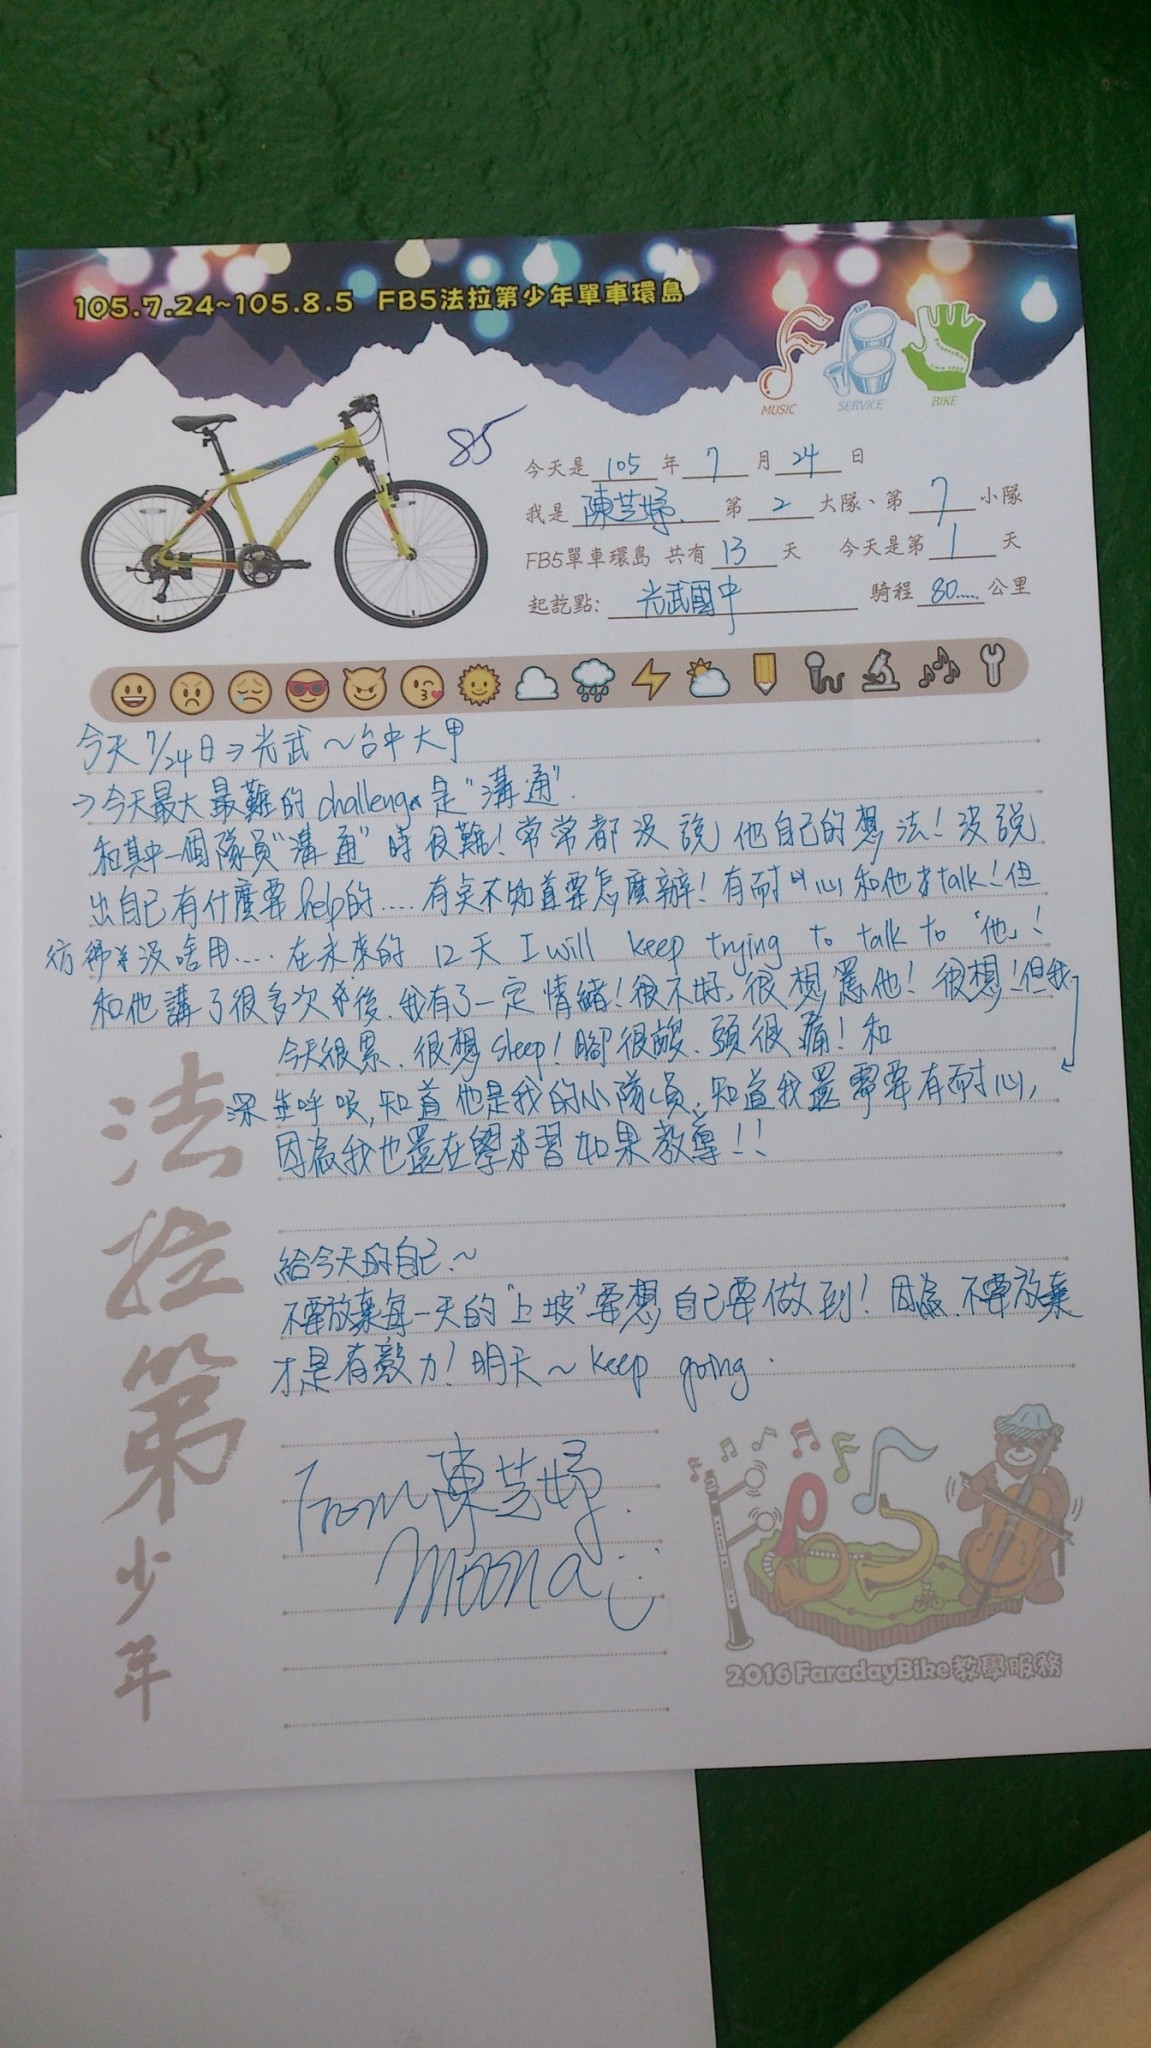 105.7.24~105.8.5 FB5法拉第少年單車環島
MUSIC SERVICE BIKE
85
今天是 105 年 7 月 24 日
我是 陳芝妤. 第 2 大隊、第 7 小隊
FB5單車環島 共有 13 天 今天是第 1 天
起訖點: 光武國中 騎程 80..... 公里
今天7/24日⇒光武~台中大甲
⇒今天最大最難的challenge是"溝通".
和其中一個隊員"溝通"時很難!常常都沒說他自己的想法!沒說
出自己有什麼要help的.....有点不知道要怎麼辦!有耐心和他talk!但
彷彿沒啥用.....在未來的12天I will keep trying to talk to「他」!
和他講了很多次後,我有了一定情緒!很不好,很想罵他!很想!但我
今天很累、很想sleep!腳很酸、頭很痛!和
深呼吸,知道他是我的小隊員,知道我還需要有耐心,
因為我也還在學習如果教導!!
給今天的自己~
不要放棄每一天的"上坡"要想自己要做到!因為不要放棄
才是有毅力!明天~keep going.
From 陳芝妤.
Moona
法拉第少年
2016 FaradayBike教學服務